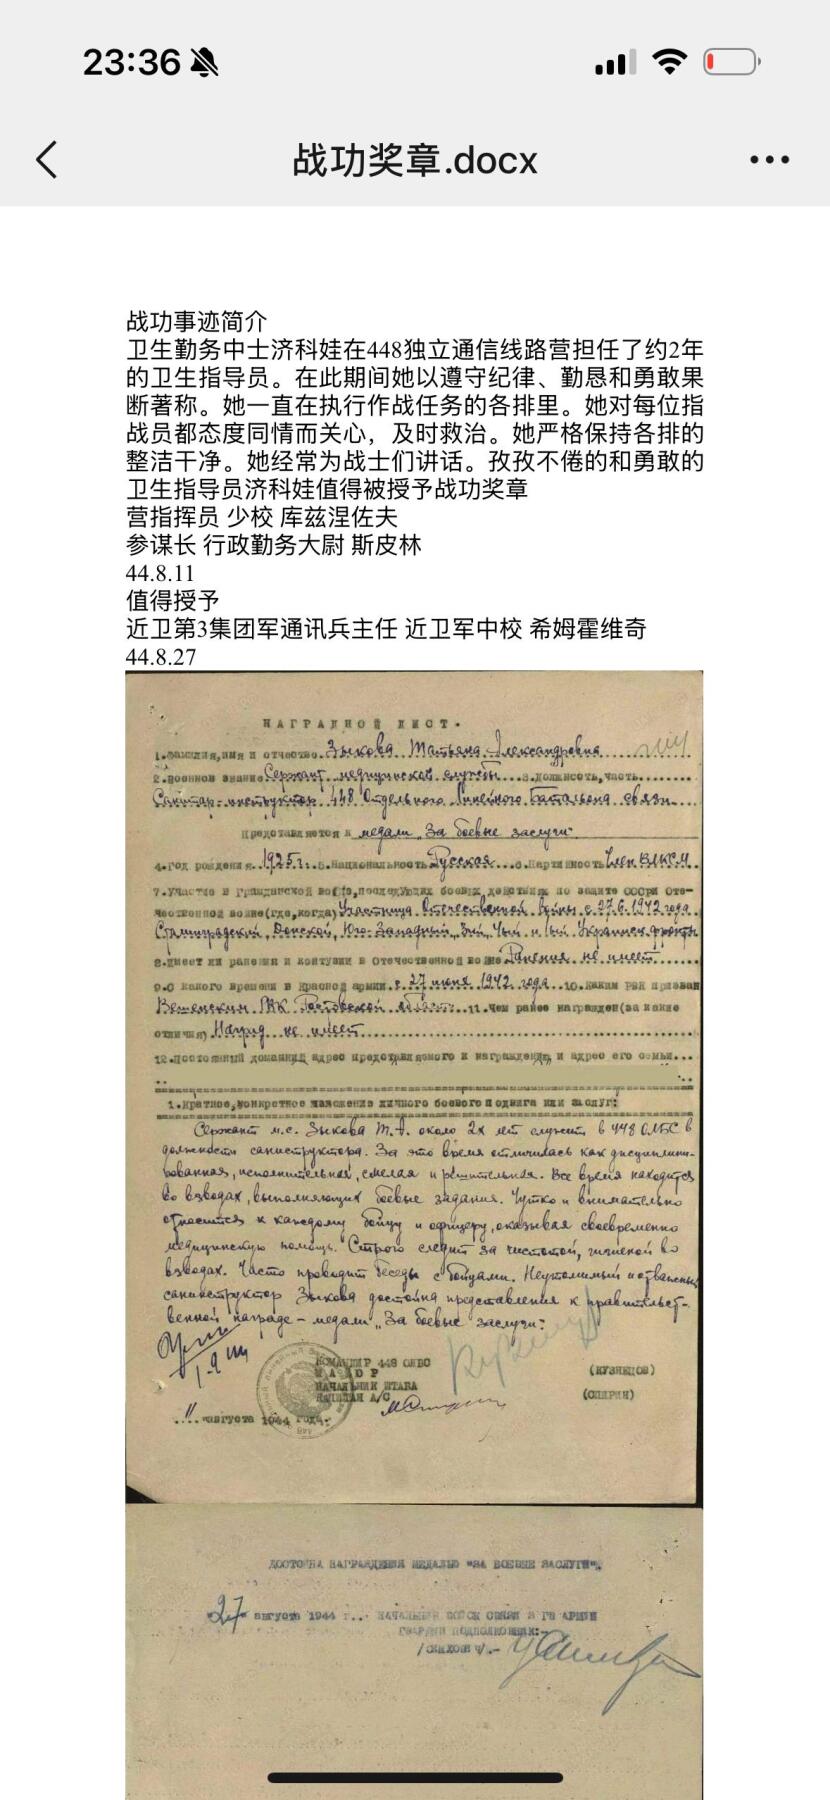 23:36
战功奖章.docx
战功事迹简介
卫生勤务中士济科娃在448独立通信线路营担任了约2年
的卫生指导员。在此期间她以遵守纪律、勤恳和勇敢果
断著称。她一直在执行作战任务的各排里。她对每位指
战员都态度同情而关心，及时救治。她严格保持各排的
整洁干净。她经常为战士们讲话。孜孜不倦的和勇敢的
卫生指导员济科娃值得被授予战功奖章
营指挥员 少校 库兹涅佐夫
参谋长 行政勤务大尉 斯皮林
44.8.11
值得授予
近卫第3集团军通讯兵主任 近卫军中校 希姆霍维奇
44.8.27
НАГРАДНОЙ ЛИСТ.
1.Фамилия,имя и отчество. Зыкова Татьяна Александровна
2.Военное звание Сержант медицинской службы 3.Должность,часть
Санитар-инструктор 448 Отдельного Линейного Батальона связи
Представляется к медали "За боевые заслуги"
4.Год рождения 1925г. 5.Национальность Русская 6.Партийность Член ВЛКСМ
7.Участие в Гражданской войне,последующих боевых действиях по защите СССР и Оте-
чественной войне(где,когда) Участница Отечественной войны с 27.6.1942 года
Сталинградский, Донской, Юго-Западный, 3ий, 4ый и 1ый Украинск. фронты
8.Имеет ли ранения и контузии в Отечественной войне Ранения не имеет
9.С какого времени в Красной армии с 27 июня 1942 года 10.Каким РВК призван
Вешенским РВК Ростовской области 11.Чем ранее награжден(за какие
отличия) Наград не имеет
12.Постоянный домашний адрес представляемого к награждению и адрес его семьи...
1.Краткое,конкретное изложение личного боевого подвига или заслуг:
Сержант м.с. Зыкова Т.А. около 2х лет служит в 448 ОЛБС в
должности саниструктора. За это время отличилась как дисциплини-
рованная, исполнительная, смелая и решительная. Все время находится
во взводах, выполняющих боевые задания. Чутко и внимательно
относится к каждому бойцу и офицеру, оказывая своевременно
медицинскую помощь. Строго следит за чистотой, гигиеной во
взводах. Часто проводит беседы с бойцами. Неутомимый и отважный
санинструктор Зыкова достойна представления к правительст-
венной награде - медали "За боевые заслуги".
КОМАНДИР 448 ОЛБС
МАЙОР
(КУЗНЕЦОВ)
НАЧАЛЬНИК ШТАБА
КАПИТАН А/С
(СПИРИН)
"11" августа 1944 года.
ДОСТОЙНА НАГРАЖДЕНИЯ МЕДАЛЬЮ "ЗА БОЕВЫЕ ЗАСЛУГИ".
"27" августа 1944 г.. НАЧАЛЬНИК ВОЙСК СВЯЗИ 3 ГВ АРМИИ
ГВАРДИИ ПОДПОЛКОВНИК:-